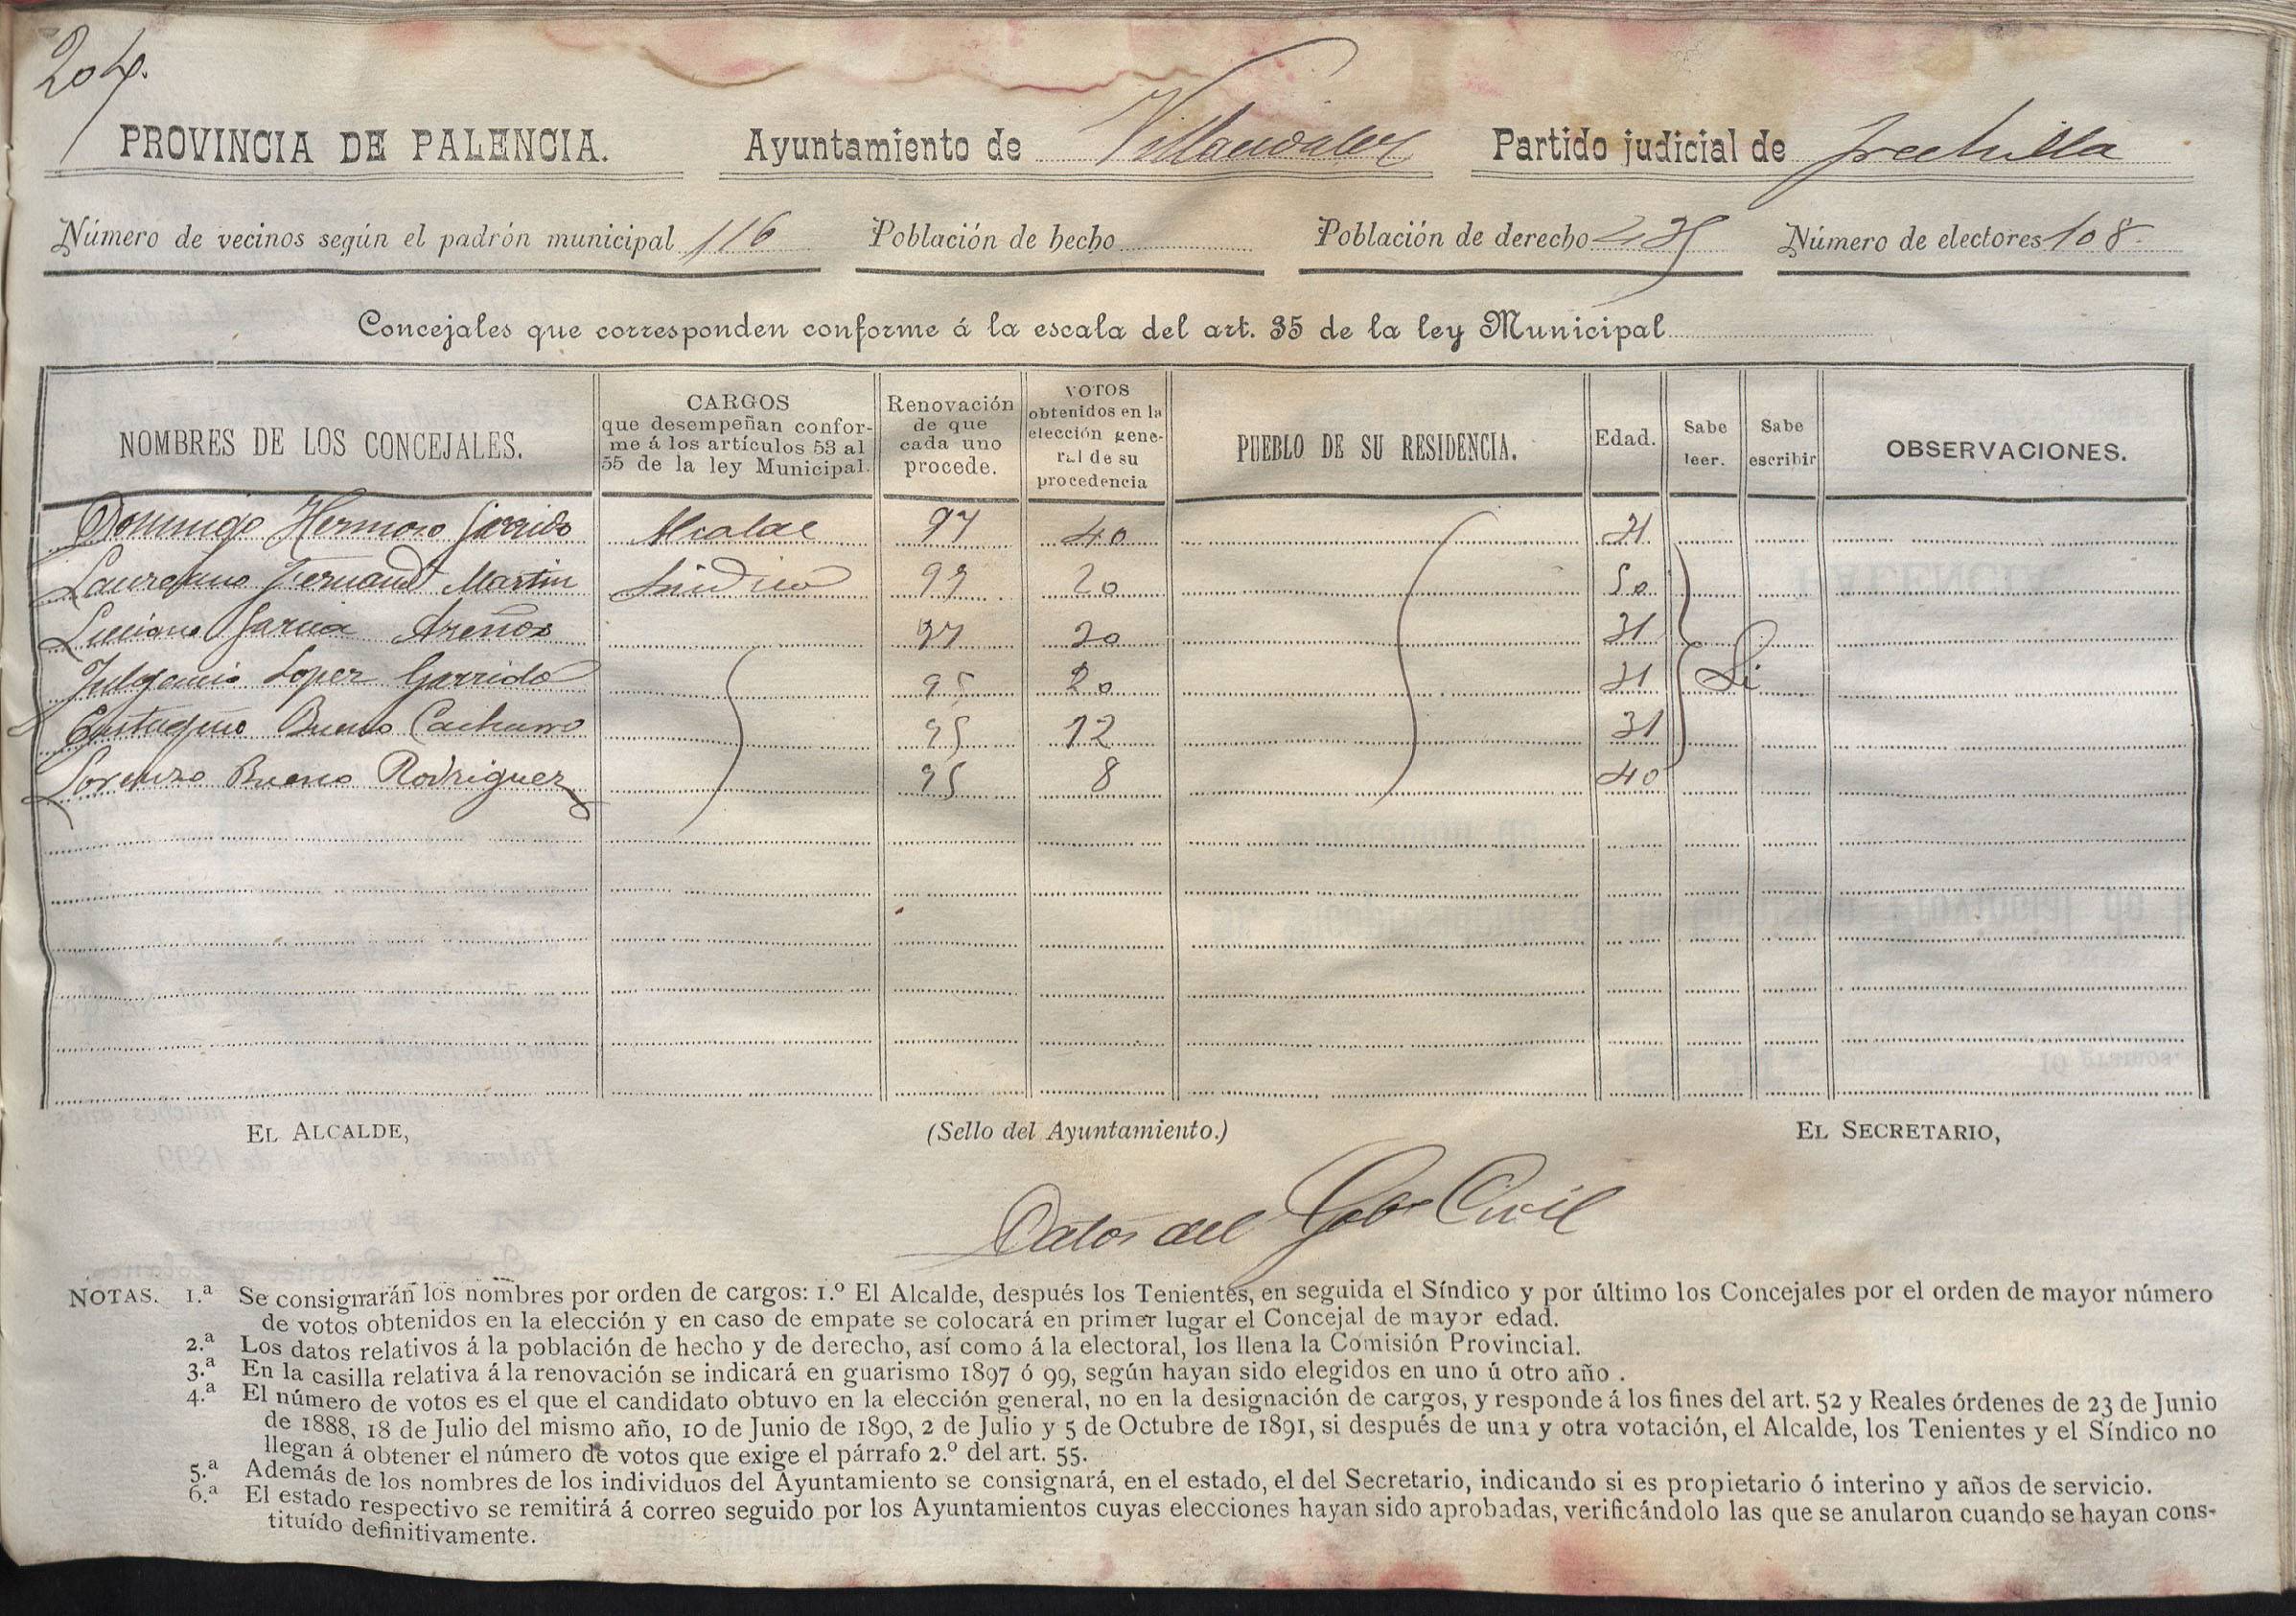 204.
PROVINCIA DE PALENCIA. Ayuntamiento de Partido judicial de Frechilla
Número de vecinos según el padrón municipal 116 Población de hecho Población de derecho Número de electores 108
Concejales que corresponden conforme á la escala del art. 35 de la ley Municipal
NOMBRES DE LOS CONCEJALES.
CARGOS
que desempeñan confor-
me á los artículos 53 al
55 de la ley Municipal.
Renovación
de que
cada uno
procede.
VOTOS
obtenidos en la
elección gene-
ral de su
procedencia
PUEBLO DE SU RESIDENCIA.
Edad.
Sabe
leer.
Sabe
escribir
OBSERVACIONES.
Domingo Hermoso Garrido Alcalde 97 40
Laureano Martin Sindico 99 20 50
Luciano Garcia 97 20 31
Fulgencio Lopez Garrido 95 20 Si
Bueno Cachurro 95 12 31
Lorenzo Bueno Rodriguez 95 8 40
EL ALCALDE, (Sello del Ayuntamiento.) EL SECRETARIO,
Datos del Gobº Civil
NOTAS. 1.ª Se consignarán los nombres por orden de cargos: 1.º El Alcalde, después los Tenientes, en seguida el Síndico y por último los Concejales por el orden de mayor número
de votos obtenidos en la elección y en caso de empate se colocará en primer lugar el Concejal de mayor edad.
2.ª Los datos relativos á la población de hecho y de derecho, así como á la electoral, los llena la Comisión Provincial.
3.ª En la casilla relativa á la renovación se indicará en guarismo 1897 ó 99, según hayan sido elegidos en uno ú otro año .
4.ª El número de votos es el que el candidato obtuvo en la elección general, no en la designación de cargos, y responde á los fines del art. 52 y Reales órdenes de 23 de Junio
de 1888, 18 de Julio del mismo año, 10 de Junio de 1890, 2 de Julio y 5 de Octubre de 1891, si después de una y otra votación, el Alcalde, los Tenientes y el Síndico no
llegan á obtener el número de votos que exige el párrafo 2.º del art. 55.
5.ª Además de los nombres de los individuos del Ayuntamiento se consignará, en el estado, el del Secretario, indicando si es propietario ó interino y años de servicio.
6.ª El estado respectivo se remitirá á correo seguido por los Ayuntamientos cuyas elecciones hayan sido aprobadas, verificándolo las que se anularon cuando se hayan cons-
tituído definitivamente.